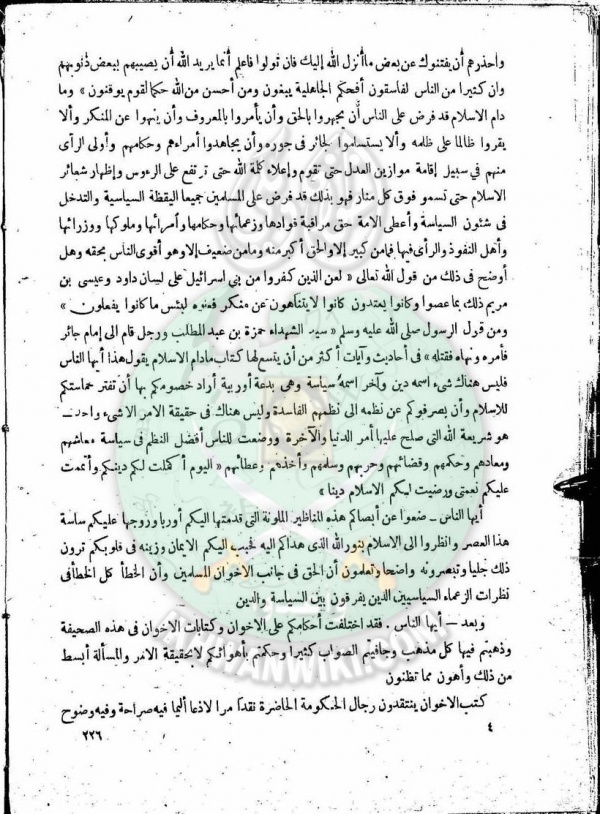 واحذرهم أن يفتنوك عن بعض ما أنزل الله إليك فان تولوا فاعلم أنما يريد الله أن يصيبهم ببعض ذنوبهم
وان كثيرا من الناس لفاسقون أفحكم الجاهلية يبغون ومن أحسن من الله حكما لقوم يوقنون » وما
دام الاسلام قد فرض على الناس أن يجهروا بالحق وأن يأمروا بالمعروف وأن ينهوا عن المنكر وألا
يقروا ظالما على ظلمه وألا يستسلموا لجائر فى جوره وأن يجاهدوا أمراءهم وحكامهم وأولى الرأى
منهم فى سبيل إقامة موازين العدل حتى تقوم وإعلاء كلمة الله حتى ترتفع على الرءوس وإظهار شعائر
الاسلام حتى تسمو فوق كل منار فهو بذلك قد فرض على المسلمين جميعا اليقظة السياسية والتدخل
فى شئون السياسة وأعطى الامة حق مراقبة قوادها وزعمائها وحكامها وأمرائها وملوكها ووزرائها
وأهل النفوذ والرأى فيها فما من كبير إلا والحق أكبر منه وما من ضعيف إلا وهو أقوى الناس بحقه وهل
أوضح فى ذلك من قول الله تعالى « لعن الذين كفروا من بنى اسرائيل على لسان داود وعيسى بن
مريم ذلك بما عصوا وكانوا يعتدون كانوا لا يتناهون عن منكر فعلوه لبئس ما كانوا يفعلون »
ومن قول الرسول صلى الله عليه وسلم « سيد الشهداء حمزة بن عبد المطلب ورجل قام الى إمام جائر
فأمره ونهاه فقتله » فى أحاديث وآيات أكثر من أن يتسع لها كتاب مادام الاسلام يقول هذا أيها الناس
فليس هناك شىء اسمه دين وآخر اسمه سياسة وهى بدعة أوربية أراد خصومكم بها أن تفتر حماستكم
للاسلام وأن يصرفوكم عن نظمه الى نظمهم الفاسدة وليس هناك فى حقيقة الامر الا شىء واحد —
هو شريعة الله التى صلح عليها أمر الدنيا والآخرة ووضعت للناس أفضل النظم فى سياسة معاشهم
ومعادهم وحكمهم وقضائهم وحربهم وسلمهم وأخذهم وعطائهم « اليوم أكملت لكم دينكم وأتممت
عليكم نعمتى ورضيت لكم الاسلام دينا »
أيها الناس — ضعوا عن أبصاركم هذه المناظير الملونة التى قدمتها اليكم أوربا وروجها عليكم ساسة
هذا العصر وانظروا الى الاسلام بنور الله الذى هداكم اليه فحبب اليكم الايمان وزينه فى قلوبكم ترون
ذلك جليا وتبصرونه واضحا وتعلمون أن الحق فى جانب الاخوان المسلمين وأن الخطأ كل الخطأ فى
نظرات الزعماء السياسيين الذين يفرقون بين السياسة والدين
وبعد — أيها الناس . فقد اختلفت أحكامكم على الاخوان وكتابات الاخوان فى هذه الصحيفة
وذهبتم فيها كل مذهب وجافيتم الصواب كثيرا وحكمتم بأهوائكم لا بحقيقة الامر والمسألة أبسط
من ذلك وأهون مما تظنون
كتب الاخوان ينتقدون رجال الحكومة الحاضرة نقدا مرا لاذعا أليما فيه صراحة وفيه وضوح
٤
٢٢٦